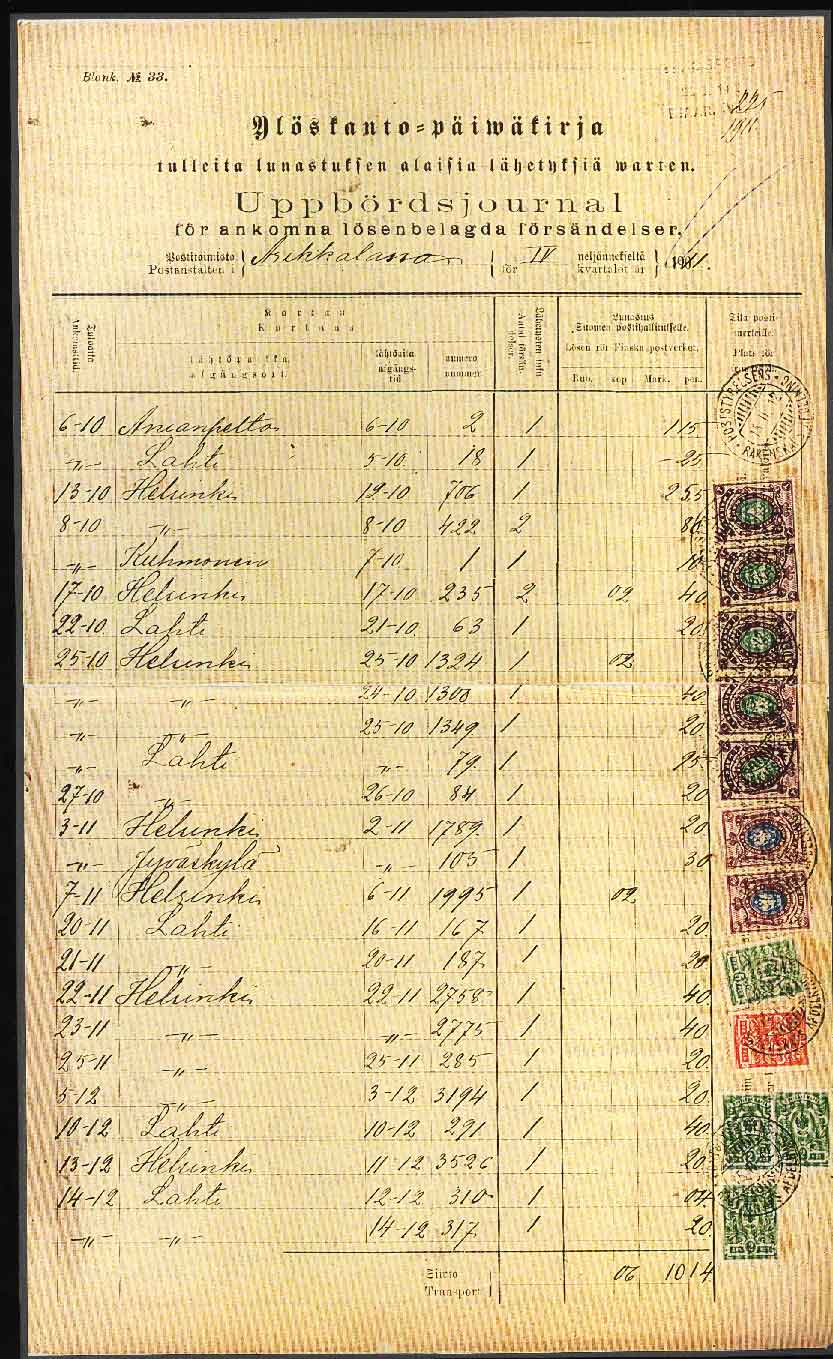 Blank. № 33.
225
1911.
Ylöskanto-päiwäkirja
tulleita lunastuksen alaisia lähetyksiä warten.
Uppbördsjournal
för ankomna lösenbelagda försändelser.
Postitoimisto Asikkalassa IV neljännekseltä
Postanstalten i för kvartalet år 1911.
Kartan Lunastus
Kartans Suomen postihallitukselle. Tila posti-
Tuloaika Lösen för Finska postverket. merkeille.
Ankomsttid. lähtöpaikka. lähtöaika numero Plats för
afgångsort. afgångs-tid. nummer. Rub. kop Mark. pen.
6-10 Anianpelto 6-10 2 1 1 15
-"- Lahti 5-10 18 1 - 25
13-10 Helsinki 12-10 706 1 2 55
8-10 -"- 8-10 422 2 80
-"- Kuhmoinen 7-10 1 1 10
17-10 Helsinki 17-10 235 2 02 40
22-10 Lahti 21-10 63 1 20
25-10 Helsinki 25-10 1324 1 02
-"- -"- 24-10 1300 1 40
-"- -"- 25-10 1349 1 20
-"- Lahti -"- 79 1 25
27-10 -"- 26-10 84 1 20
3-11 Helsinki 2-11 1789 1 20
-"- Jyväskylä -"- 105 1 30
7-11 Helsinki 6-11 1995 1 02
20-11 Lahti 16-11 167 1 20
21-11 -"- 20-11 187 1 20
22-11 Helsinki 22-11 2758 1 40
23-11 -"- -"- 2775 1 40
25-11 -"- 25-11 285 1 20
5-12 -"- 3-12 3194 1 20
10-12 Lahti 10-12 291 1 40
13-12 Helsinki 11-12 3526 1 20
14-12 Lahti 12-12 310 1 04
-"- -"- 14-12 317 1 20
Siirto 06 10 14
Transport
POSTSTYRELSENS